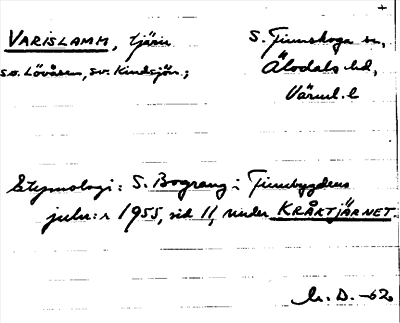 VARISLAMM, tjärn
S. Finnskoga sn,
so. Lövåsen, sv. Kindsjön;
Älvdals hd,
Värml. l
Etymologi: S. Bograng i Finnbygdens
julnr 1955, sid 11, under KRÅKTJÄRNET.
D. -62